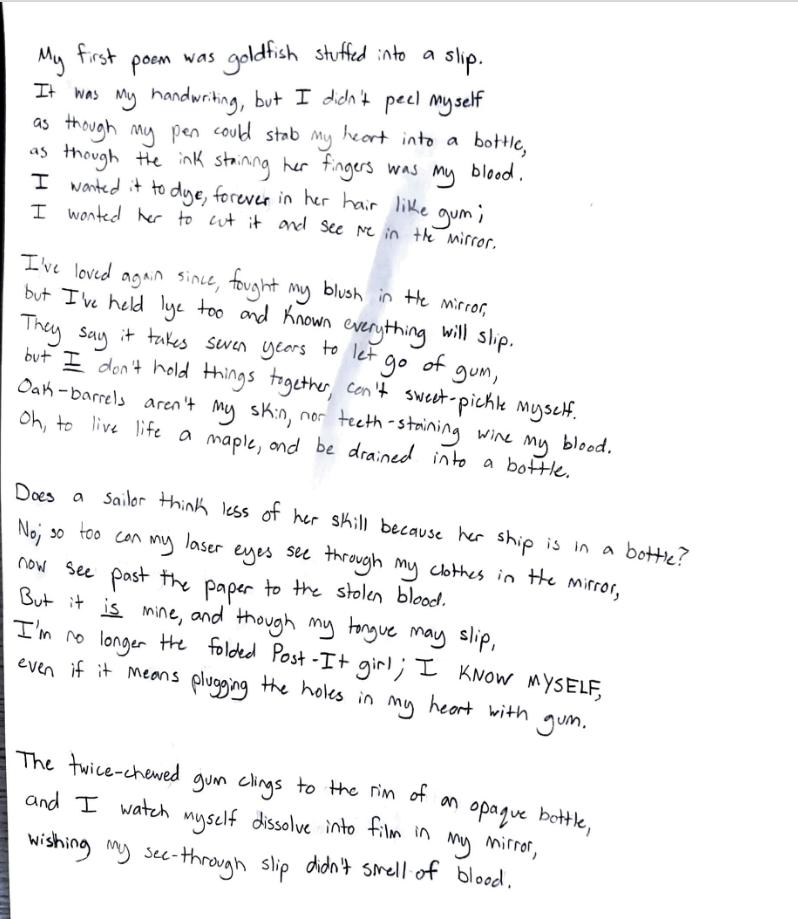 My first poem was goldfish stuffed into a slip.
It was my handwriting, but I didn't peel myself
as though my pen could stab my heart into a bottle,
as though the ink staining her fingers was my blood.
I wanted it to dye, forever in her hair like gum;
I wanted her to cut it and see me in the mirror.
I've loved again since, fought my blush in the mirror,
but I've held lye too and known everything will slip.
They say it takes seven years to let go of gum,
but I don't hold things together, can't sweet-pickle myself.
Oak-barrels aren't my skin, nor teeth-staining wine my blood.
Oh, to live life a maple, and be drained into a bottle.
Does a sailor think less of her skill because her ship is in a bottle?
No; so too can my laser eyes see through my clothes in the mirror,
now see past the paper to the stolen blood.
But it is mine, and though my tongue may slip,
I'm no longer the folded Post-It girl; I KNOW MYSELF,
even if it means plugging the holes in my heart with gum.
The twice-chewed gum clings to the rim of an opaque bottle,
and I watch myself dissolve into film in my mirror,
wishing my see-through slip didn't smell of blood.